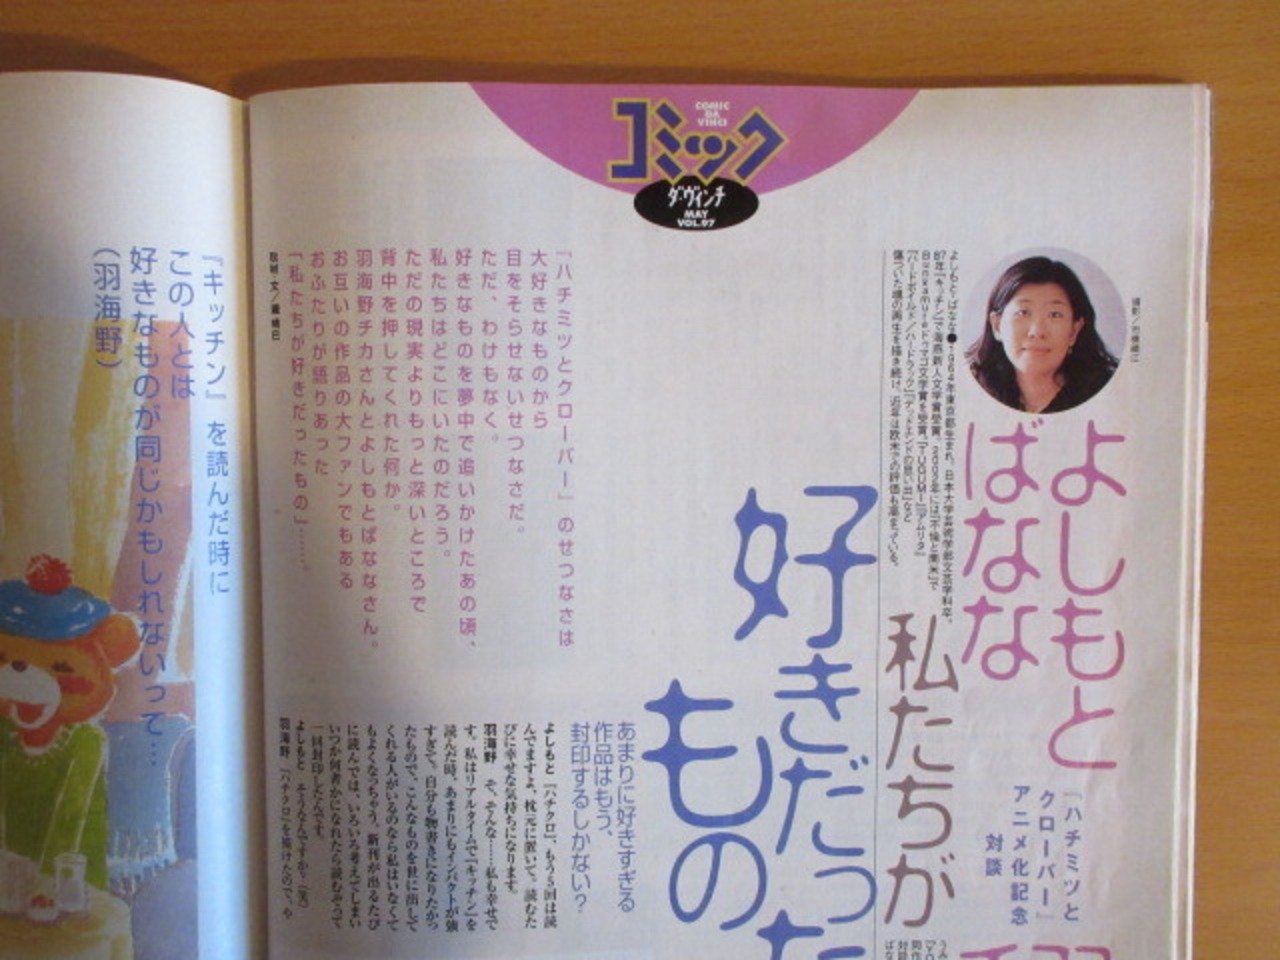 コミック
COMIC
DA
VINCI
ダ・ヴィンチ
MAY
VOL.97
よしもと
ばなな
『ハチミツと
クローバー』
アニメ化記念
対談
私たちが
好きだった
もの
『ハチミツとクローバー』のせつなさは
大好きなものから
目をそらせないせつなさだ。
ただ、わけもなく。
好きなものを夢中で追いかけたあの頃、
私たちはどこにいたのだろう。
ただの現実よりももっと深いところで
背中を押してくれた何か。
羽海野チカさんとよしもとばななさん。
お互いの作品の大ファンでもある
おふたりが語りあった
「私たちが好きだったもの」……。
あまりに好きすぎる
作品はもう、
封印するしかない？
よしもと 『ハチクロ』、もう5回は読
んでますよ、枕元に置いて。読むた
びに幸せな気持ちになります。
羽海野 そ、そんな……私も幸せで
す。私はリアルタイムで『キッチン』を
読んだ時、あまりにもインパクトが強
すぎて。自分も物書きになりたかっ
たもので、こんなものを世に出して
くれる人がいるのなら私はいなくて
もよくなっちゃう。新刊が出るたび
に読んでは、いろいろ考えてしまい
いつか何者かになれたら読むぞって
一回封印したんです。
よしもと そうなんですか？（笑）
羽海野 『ハチクロ』を描けたので、や
『キッチン』を読んだ時に
この人とは
好きなものが同じかもしれないって…
（羽海野）